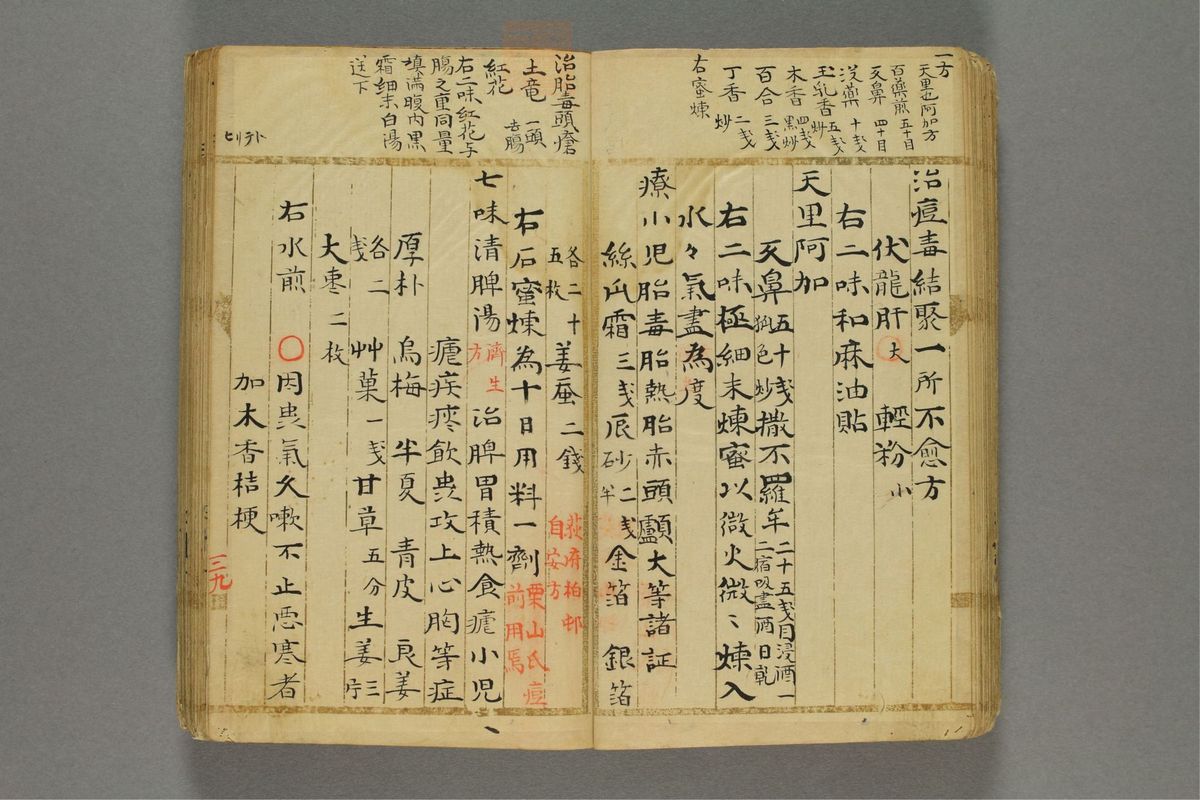 一方
天里也阿加方
百藥煎 五十目
亥鼻 四十目
沒藥 十戔
玉乳香 炒 五戔
木香 四戔 黒炒
百合 三戔
丁香 炒 二戔
右蜜煉
治痘毒結聚一所不愈方
伏龍肝 大 輕粉 小
右二味和麻油貼
天里阿加
亥鼻 五十戔 炒 撒不羅年 二十五戔目浸酒一
二宿吸盡酒日乾
右二味極細末煉蜜以微火微〻煉入
水々氣盡為度
療小児胎毒胎熱胎赤頭顱大等諸証
絲瓜霜 三戔 辰砂 二戔半 金箔 銀箔
各二十
五枚
姜蚕 二錢
荻府柏邨
自安方
右石蜜煉為十日用料一劑
栗山氏痘
前用焉
七味清脾湯
濟生
方
治脾胃積熱食瘧小児
瘧疾痰飲蚩攻上心胸等症
厚朴 烏梅 半夏 青皮 良姜
各二
戔
艸菓 一戔 甘草 五分 生姜 三片
大棗 二枚
右水煎 〇因蚩氣久嗽不止悪寒者
加木香桔梗
治胎毒頭瘡
土竜 一頭
去腸
紅花
右二味紅花与
腸之重同量
填滿腹内黒
霜細末白湯
送下
三九